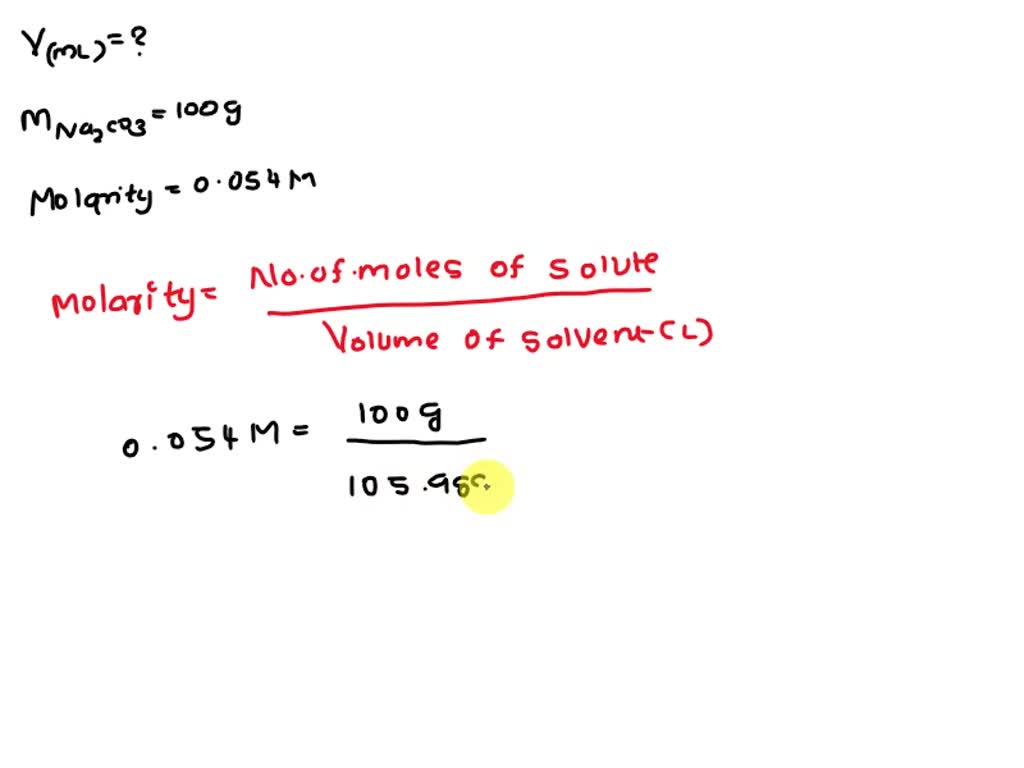 V(mL) = ?
MNa2CO3 = 100 g
Molarity = 0.054 M
Molarity = No. of. moles of solute
Volume of solvent (L)
0.054 M = 100 g
105.98